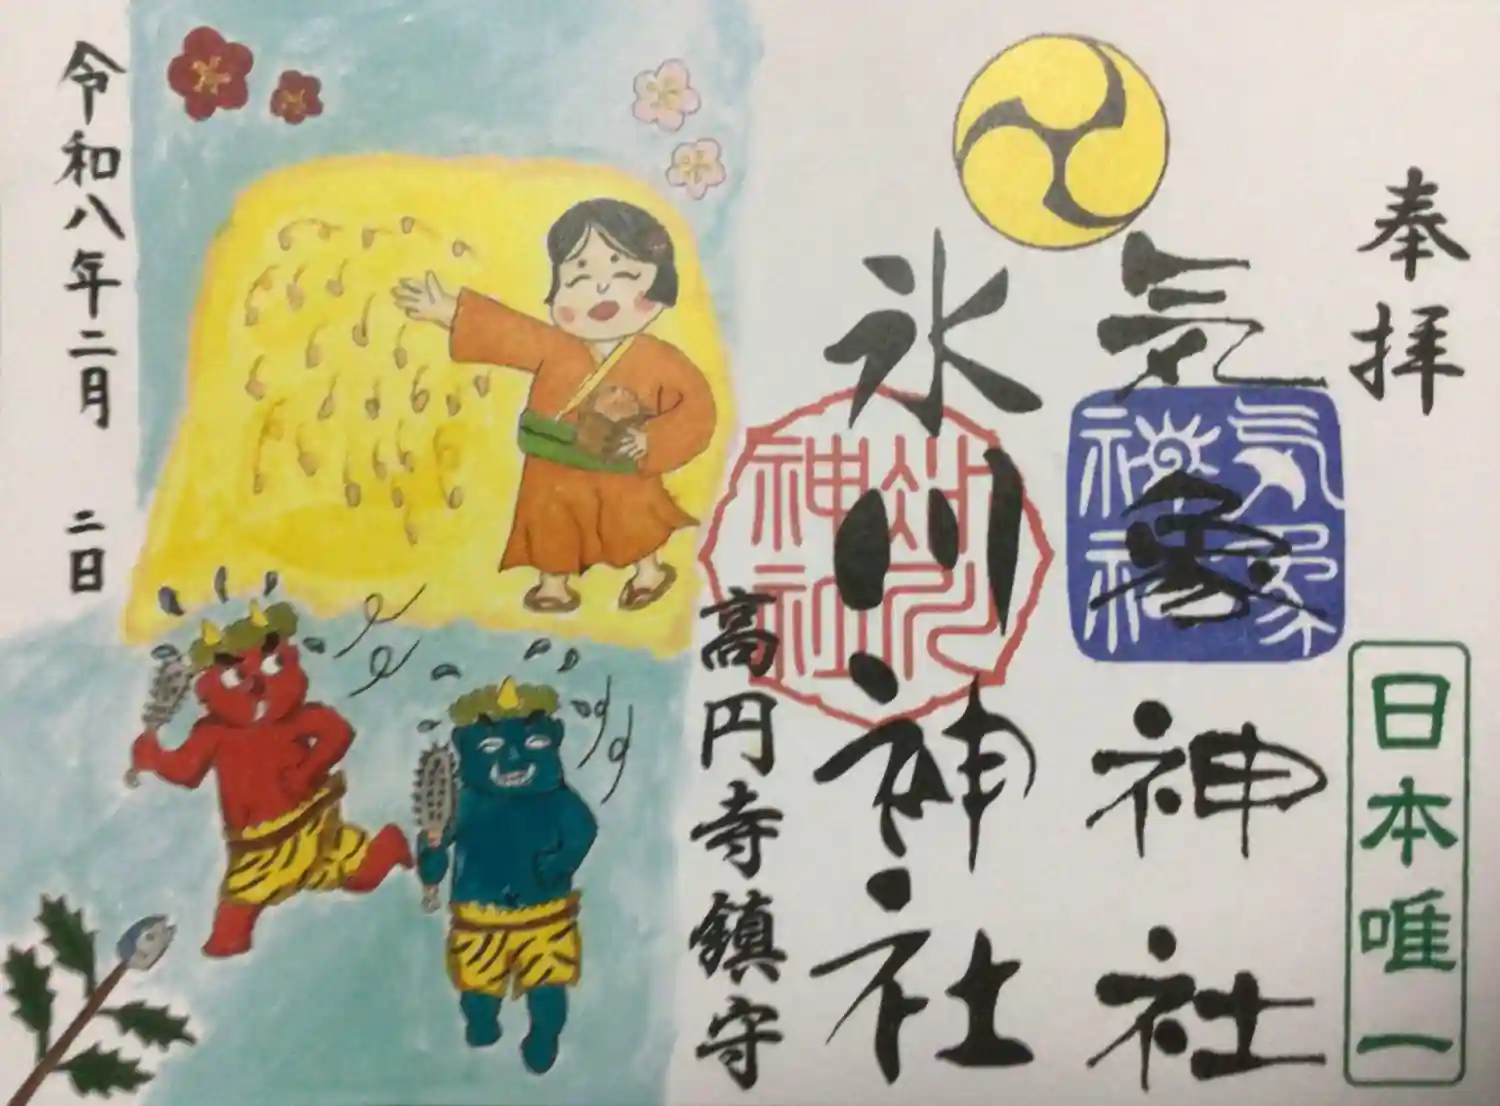 奉拝
日本唯一
気象神社
気象神社
氷川神社
氷川神社
高円寺鎮守
令和八年二月 二日